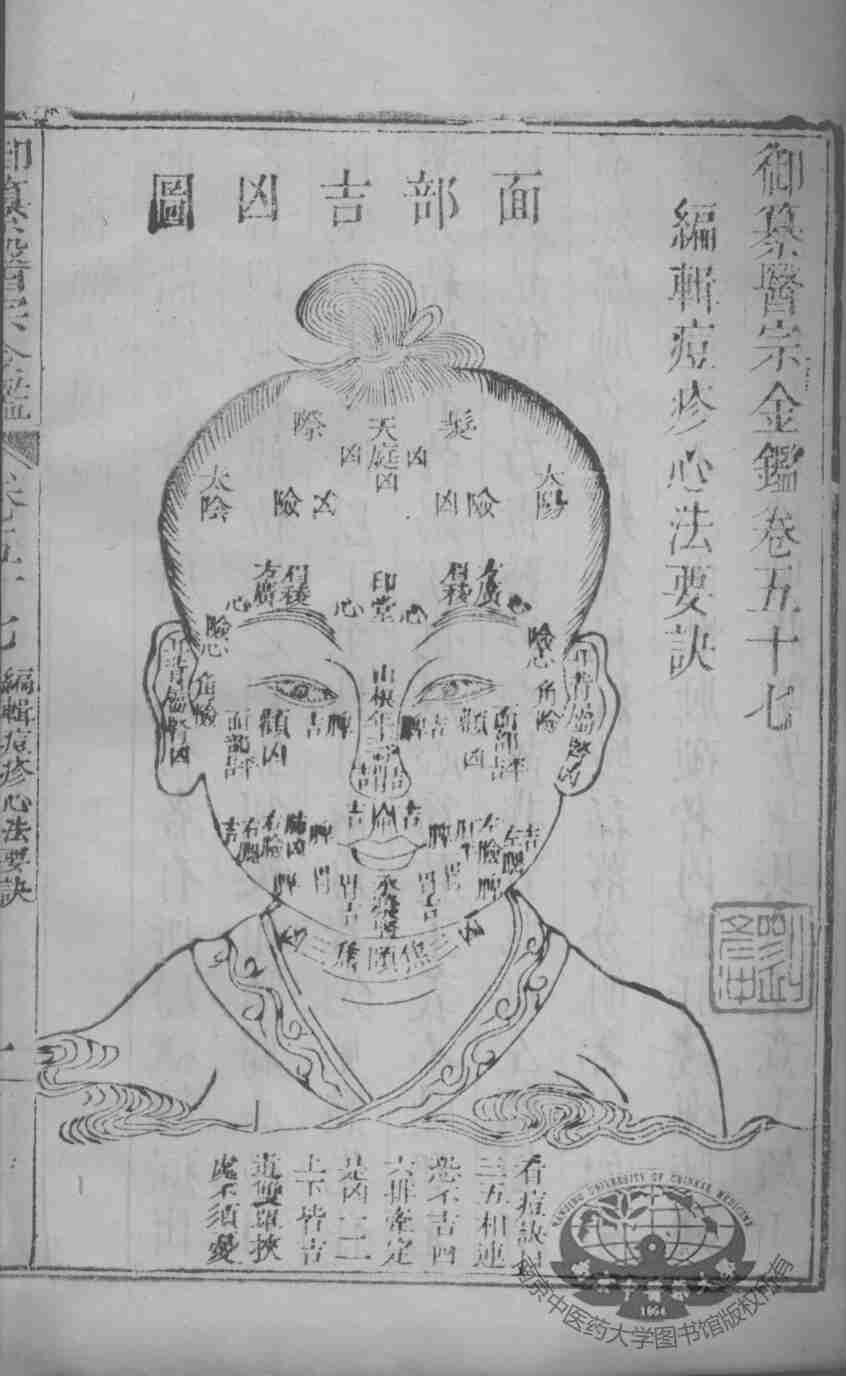 御纂醫宗金鑑卷五十七
編輯痘疹心法要訣
面部吉凶圖
髮際
天庭
凶
凶
凶
太陽
太陰
險
凶
凶
險
方廣
方廣
印堂
心
心
心
心
險
險
山根
角險
角險
年壽
顴凶
顴凶
脾
吉
吉
脾
面部評吉
面部評
吉
吉
左臉
右臉
左腮
右腮
吉
吉
肺凶
肝
脾
脾
胃
胃
胃吉
胃吉
脾
脾
承漿
頦
看痘訣曰
三五相連
恐不吉四
六排牽定
是凶一二
上下皆吉
道雙單挾
處不須憂
御纂醫宗金鑑
卷五十七
編輯痘疹心法要訣
一
NANJING UNIVERSITY OF CHINESE MEDICINE
1954
南京中医药大学图书馆版权所有